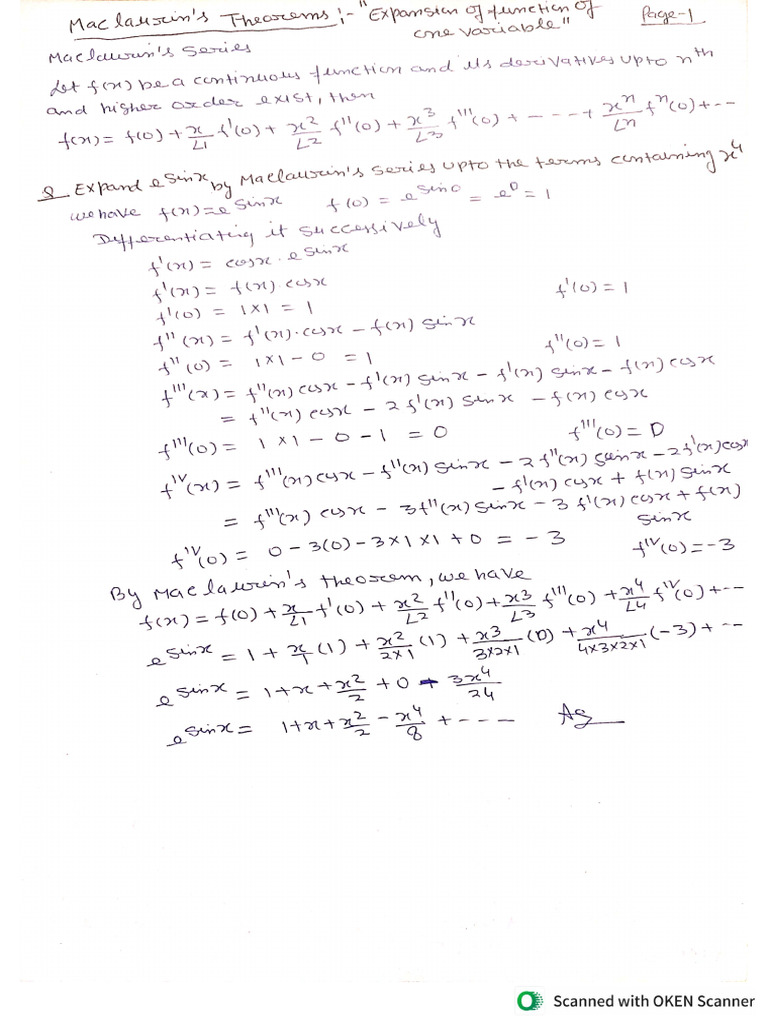 Maclaurin's Theorems :- "Expansion of function of one variable" Page-1
Maclaurin's Series
Let f(x) be a continuous function and its derivatives upto nth
and higher order exist, then
f(x) = f(0) + x/∠1 f'(0) + x²/∠2 f''(0) + x³/∠3 f'''(0) + - - - - + xⁿ/∠n fⁿ(0) + - -
Q Expand e^sinx by Maclaurin's Series upto the terms containing x⁴
we have f(x) = e^sinx f(0) = e^sin0 = e^0 = 1
Differentiating it successively
f'(x) = cosx · e^sinx
f'(x) = f(x) · cosx f'(0) = 1
f'(0) = 1×1 = 1
f''(x) = f'(x)·cosx - f(x) sinx
f''(0) = 1×1 - 0 = 1 f''(0) = 1
f'''(x) = f''(x) cosx - f'(x) sinx - f'(x) sinx - f(x) cosx
= f''(x) cosx - 2 f'(x) sinx - f(x) cosx
f'''(0) = 1×1 - 0 - 1 = 0 f'''(0) = 0
f^IV(x) = f'''(x) cosx - f''(x) sinx - 2 f''(x) sinx - 2 f'(x) cosx
- f'(x) cosx + f(x) sinx
= f'''(x) cosx - 3f''(x) sinx - 3 f'(x) cosx + f(x)
sinx
f^IV(0) = 0 - 3(0) - 3×1×1 + 0 = -3 f^IV(0) = -3
By Maclaurin's theorem, we have
f(x) = f(0) + x/∠1 f'(0) + x²/∠2 f''(0) + x³/∠3 f'''(0) + x⁴/∠4 f^IV(0) + - -
e^sinx = 1 + x/1 (1) + x²/2×1 (1) + x³/3×2×1 (0) + x⁴/4×3×2×1 (-3) + - -
e^sinx = 1 + x + x²/2 + 0 - 3x⁴/24
e^sinx = 1 + x + x²/2 - x⁴/8 + - - - -
Scanned with OKEN Scanner